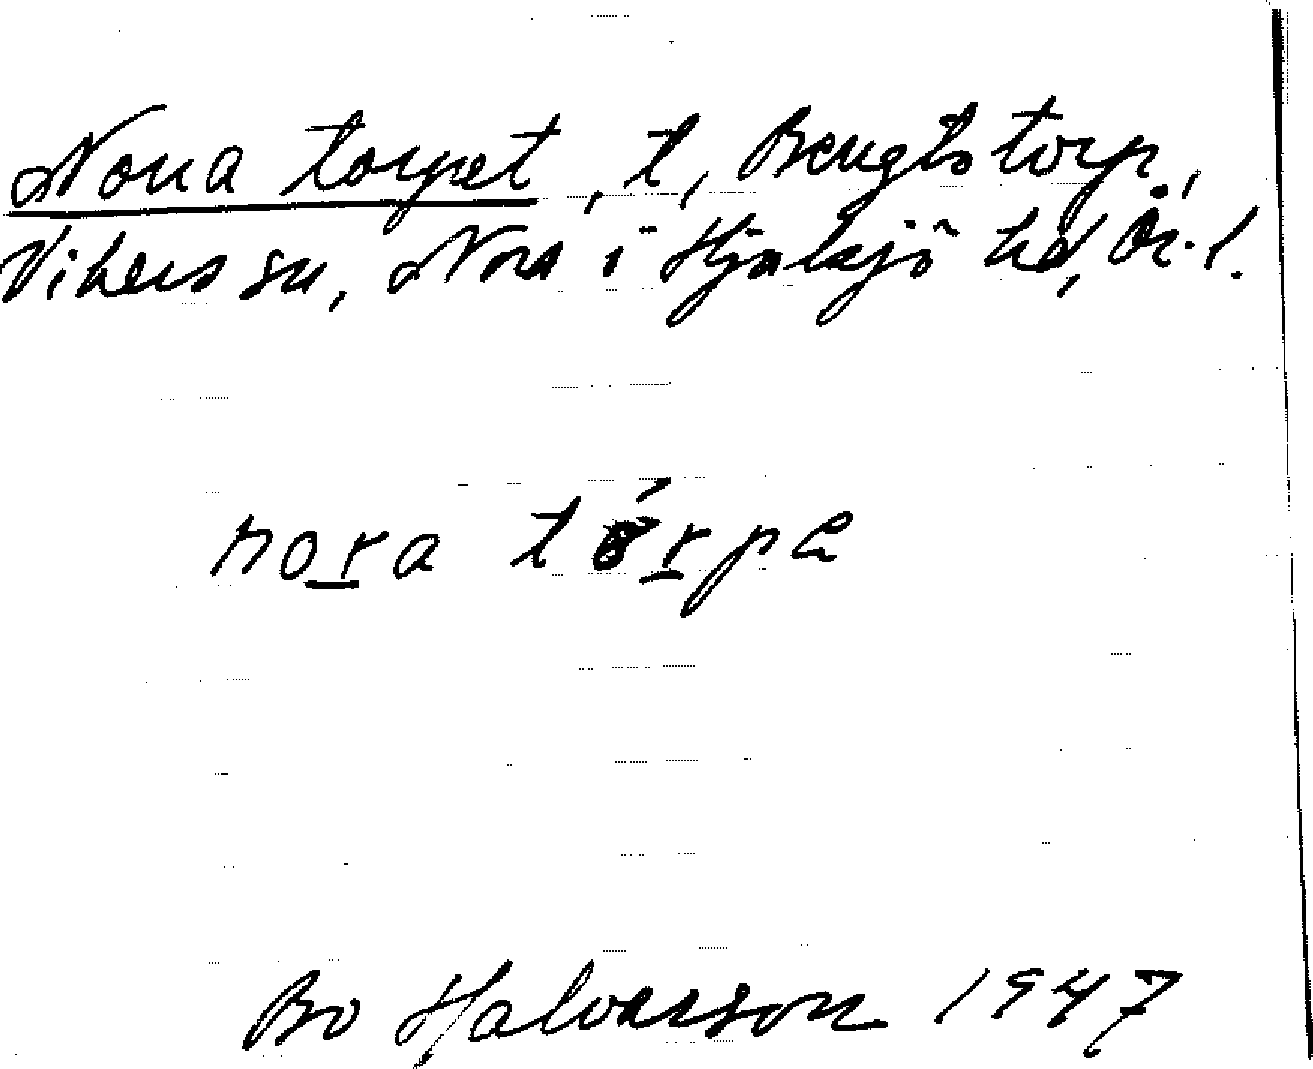 Norra torpet, t, Bengtstorp,
Vikers sn, Nora o Hjulsjö hd, Ör. l.
nora tórpe
Bo Halvarsson 1947